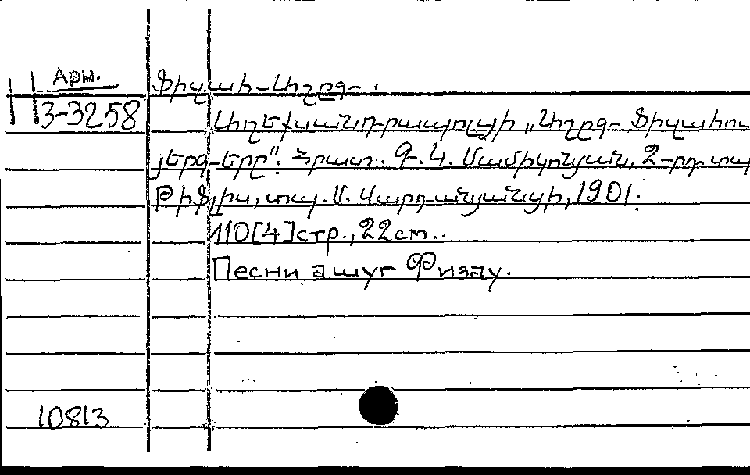 Арм.
3-3258
Ֆիզահի-Աշըղ.
Աղեքսանդրապոլցի „Աշըղ Ֆիզահու
յերգերը": Հրատ. Գ. Ն. Մամիկոնյան, 2-րդ տպ
Թիֆլիս, տպ. Մ. Վարդանյանցի, 1901.
110[4]стр., 22см.
Песни ашуг Физау.
10813